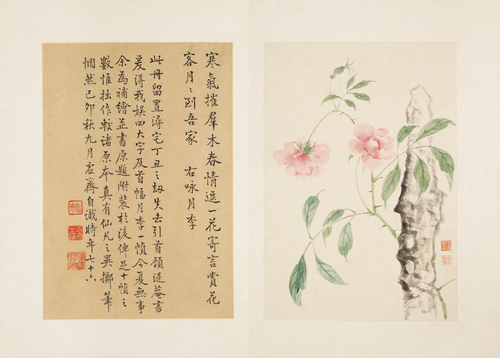 寒氣摧羣木春情逗一花寄言賞花
客月〻到吾家 右詠月季
此冊留置潯宅丁丑之劫失去引首菴書
爰得我娱四大字及首幅月季一幀今夏無事
余為補繪並書原題附裝於後俾足十幀之
數惟拙作較諸原本真有仙凡之異擲筆
惘然己卯秋九月虛齋自識時年七十六